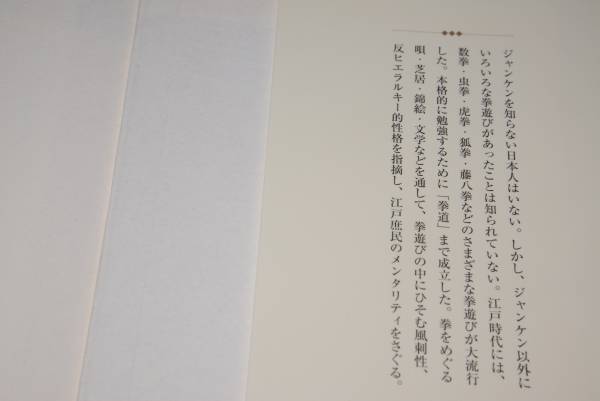 ジャンケンを知らない日本人はいない。しかし、ジャンケン以外に
いろいろな拳遊びがあったことは知られていない。江戸時代には、
数拳・虫拳・虎拳・狐拳・藤八拳などのさまざまな拳遊びが大流行
した。本格的に勉強するために「拳道」まで成立した。拳をめぐる
唄・芝居・錦絵・文学などを通して、拳遊びの中にひそむ風刺性、
反ヒエラルキー的性格を指摘し、江戸庶民のメンタリティをさぐる。